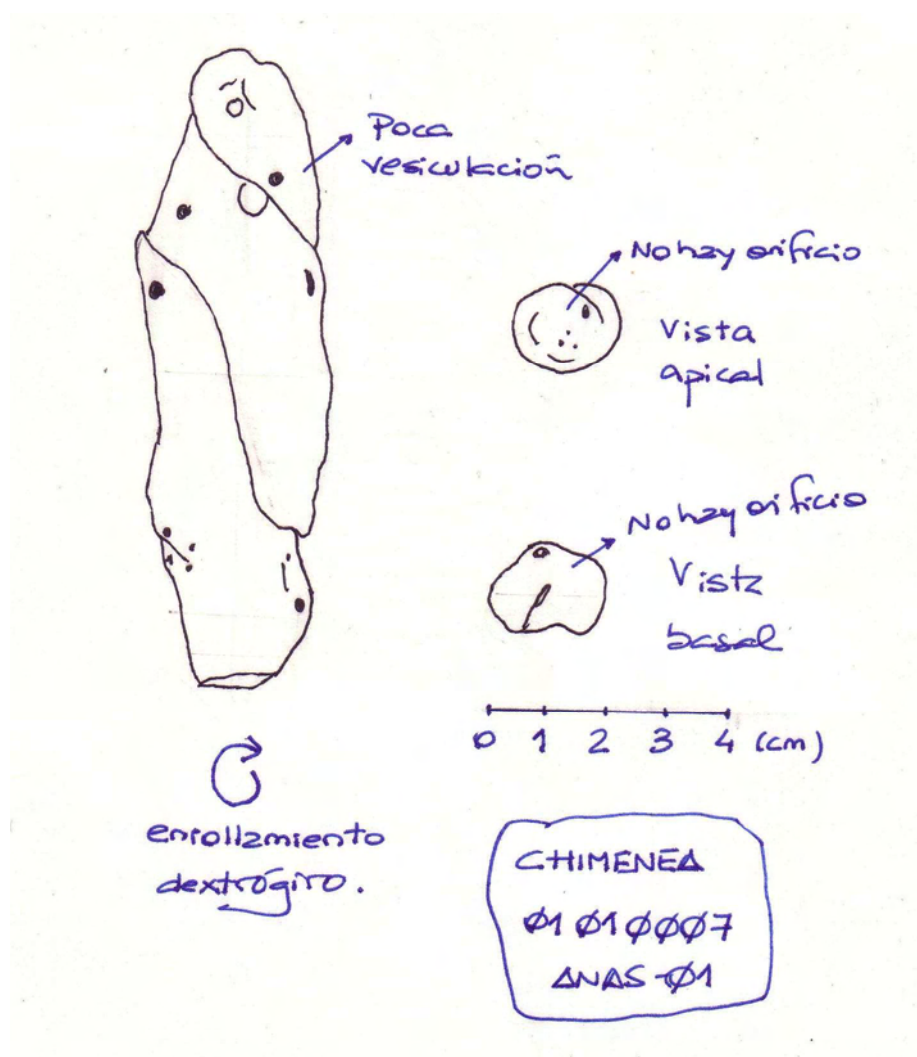 Poca
vesiculación
No hay orificio
Vista
apical
No hay orificio
Vista
basal
0 1 2 3 4 (cm)
enrollamiento
dextrógiro.
CHIMENEA
01 01 0007
ANAS-01